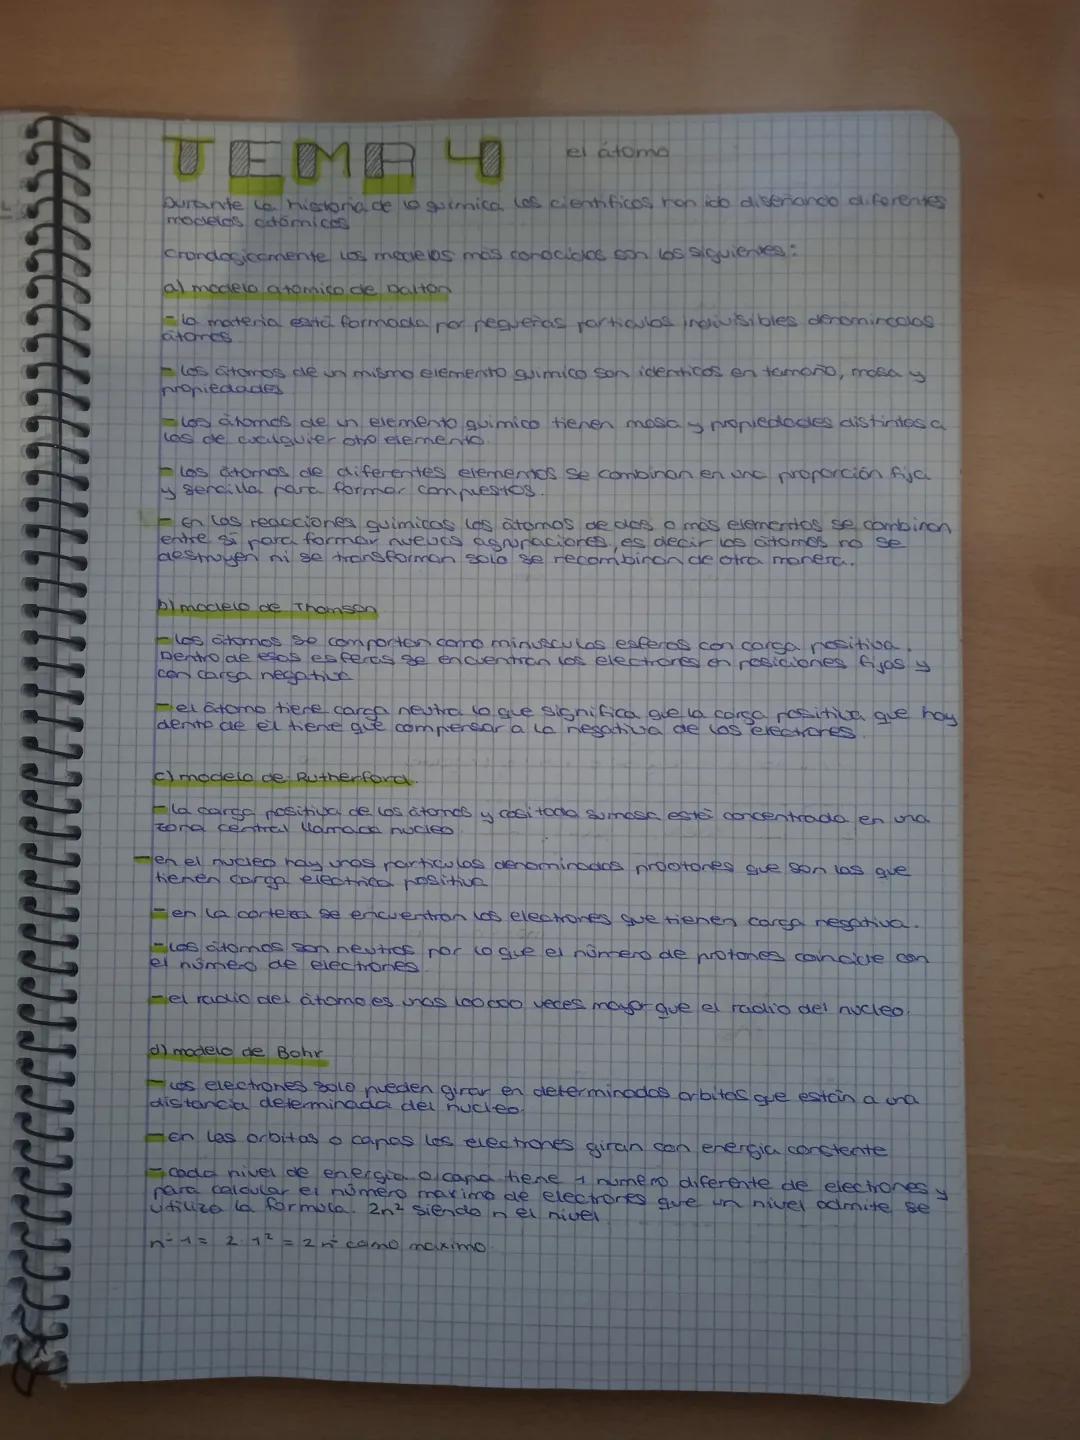 TEMA 4 el átomo
Durante la historia de la química los científicos han ido diseñando diferentes
modelos atómicos
Cronologicamente los modelos más conocidos son los siguientes:
a) modelo atómico de Dalton
- la materia está formada por pequeñas particulas indivisibles denominadas
átomos
- los átomos de un mismo elemento químico son identicos en tamaño, masa y
propiedades
- Los átomos de un elemento químico tienen masa y propiedades distintas a
las de cualquier otro elemento.
- los átomos de diferentes elementos se combinan en una proporción fija
y sencilla para formar compuestos.
- en las reacciones químicas los átomos de dos o más elementos se combinan
entre sí para formar nuevas agrupaciones, es decir los átomos no se
destruyen ni se transforman solo se recombinan de otra manera.
b) modelo de Thomson
- los átomos se comportan como minusculas esferas con carga positiva.
Dentro de esas esferas se encuentran los electrones en posiciones fijas y
con carga negativa
- el átomo tiene carga neutra lo que significa que la carga positiva que hay
dentro de él tiene que compensar a la negativa de los electrones.
c) modelo de Rutherford.
- la carga positiva de los átomos y casi toda su masa está concentrada en una
zona central llamada núcleo
- en el nucleo hay unas particulas denominadas prootones que son las que
tienen carga eléctrica positiva
- en la corteza se encuentran los electrones que tienen carga negativa.
- Los átomos son neutros por lo que el número de protones coincide con
el número de electrones.
- el radio del átomo es unas 100000 veces mayor que el radio del nucleo.
d) modelo de Bohr
- Los electrones solo pueden girar en determinadas orbitas que están a una
distancia determinada del nucleo.
- en las orbitas o capas los electrones giran con energía constante
- cada nivel de energía o capa tiene 1 numero diferente de electrones y
para calcular el número maximo de electrones que un nivel admite se
utiliza la fórmula. 2n² siendo n el nivel
2·1² = 2 como maximo.